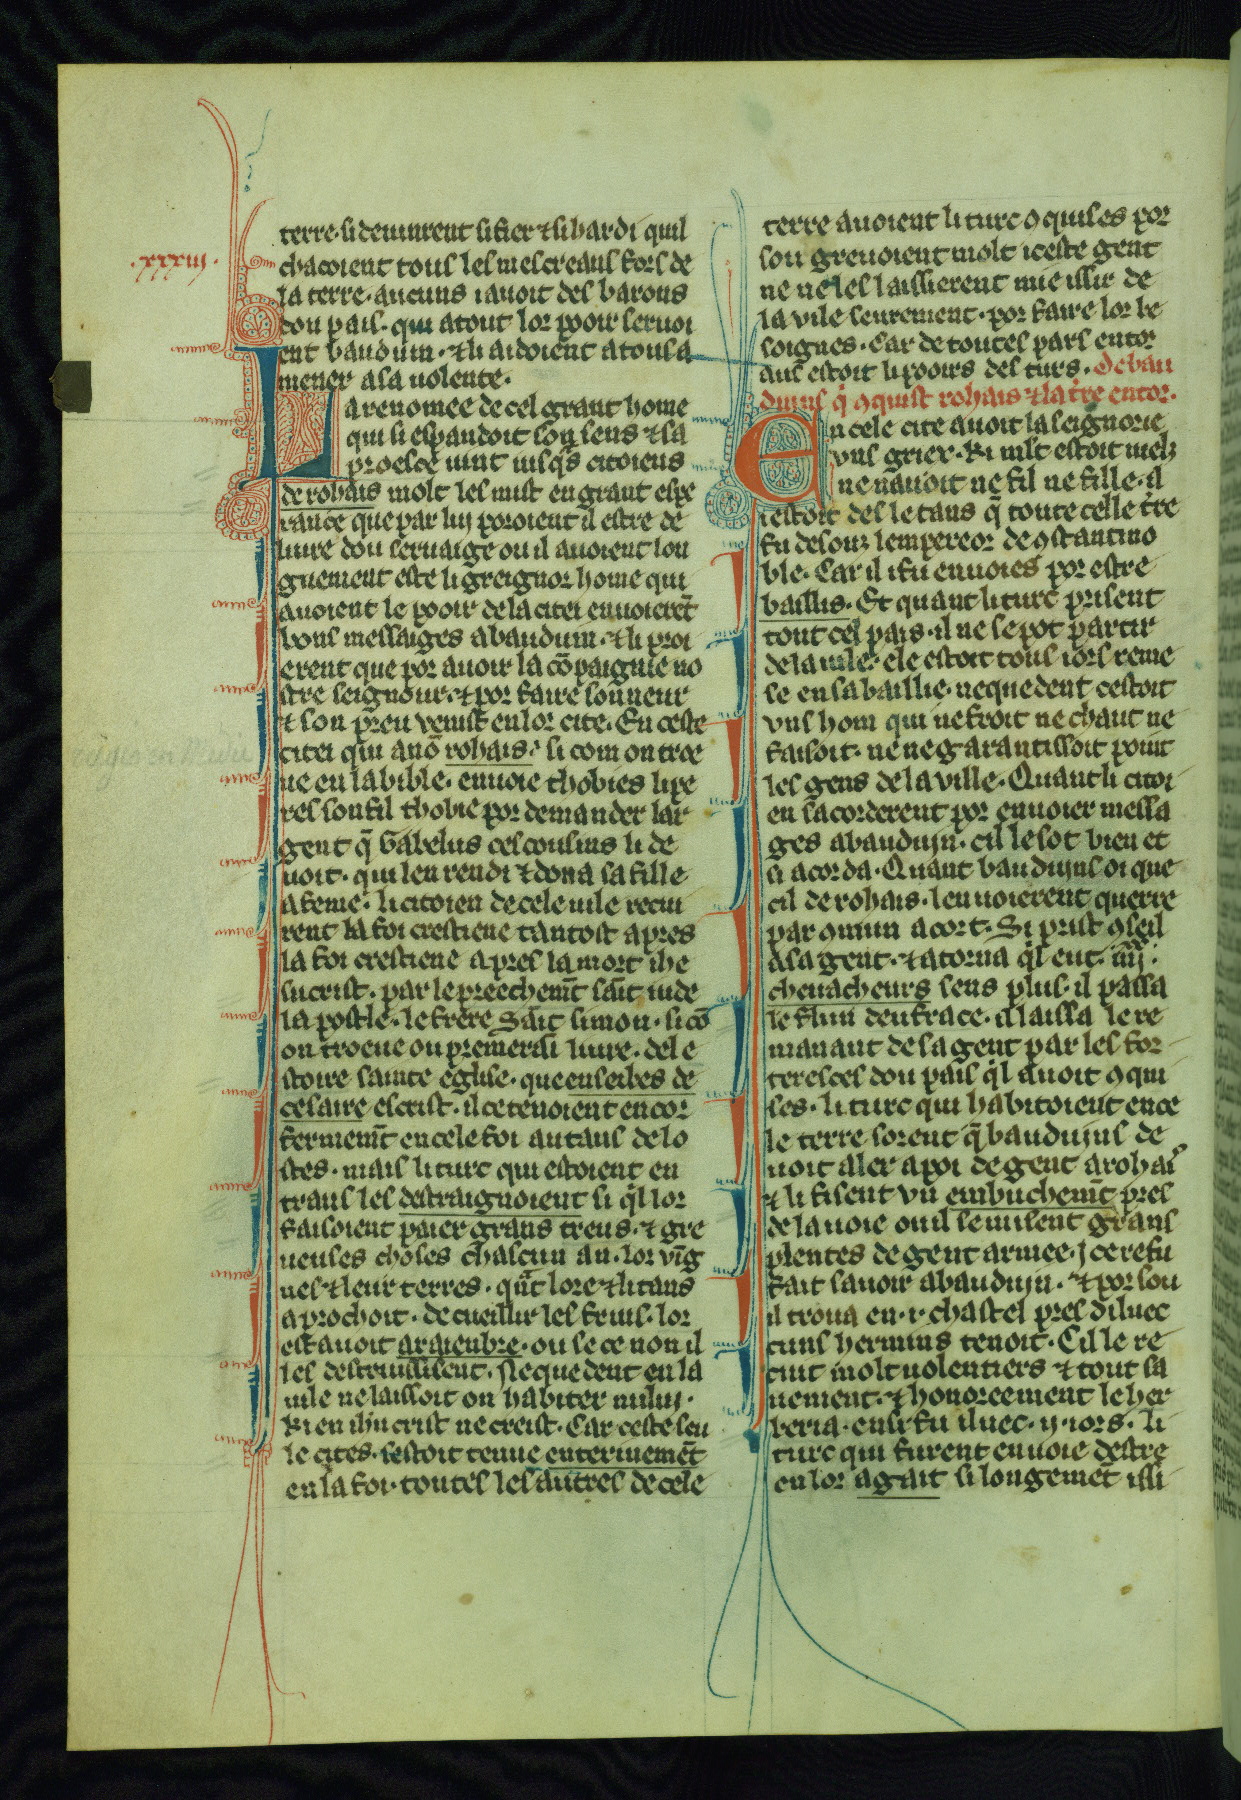 terre. si deuinrent si fier ⁊ si hardi quil
.xxxiij.
chacoient tous les mescreans fors de
la terre. aucuns i auoit des barons
dou pais. qui a tout lor pooir seruoi
ent bauduin. ⁊ li aidoient a tous a
mener a sa uolente.
La renomee de cel grant home
qui si espandoit son sens ⁊ sa
proesce uint iusq̃s citoiens
de rohais molt les mist en grant espe
rance que par luj poroient il estre de
liure dou seruaige ou il auoient lon
guement este li greignor home qui
auoient le pooir de la citei enuoierẽt
bons messaiges a bauduin. ⁊ li proi
erent que por auoir la cõpaignie no
stre seignour. ⁊ por faire son neur
⁊ son preu venist en lor cite. En ceste
citei qui a nõ rohais. si com on troe
ue en la bible. enuoie thobies li pe
res son fil thobie por demander lar
gent q̃ Gabelus ces cousins li de
uoit. qui len rendi ⁊ dona sa fille
a feme. li citoien de cele uile recui
rent la foi crestiene tantost apres
la foi crestiene apres la mort ihe
sucrist. par le preechemẽt saĩt iude
la postle. le frere Sait simon. si cõ
on troeue ou premerai liure. de le
stoire sainte eglise. que enseibes de
cesaire escrist. il ce tenoient encor
fermemẽt en cele foi au tans de lo
stes. mais li turc qui estoient en
trans les destraignoient si q̃l lor
faisoient paier grans treus. ⁊ gre
ueuses choses chascun an. lor vĩg
nes ⁊ leur terres. qũt lore ⁊ li tans
aprochoit. de cueillir les fruis. lor
estauoit araienbre. ou se ce non il
les destruissisent. Nequedent en la
uile ne laissoit on habiter nuluj.
Ki en ihũcrist ne creist. Car ceste seu
le cites. sestoit tenue enterinemẽt
en la foi. toutes les autres de cele
terre auoient li turc ꝯquises por
sou greuoient molt iceste gent
ne ne les laissierent mie issir de
la vile seurement. por faire lor be
soignes. Car de toutes pars entor
aus estoit li pooirs des turs. De bau
duins q̇ ꝯquist rohais ⁊ la tr̃e entor.
En cele cite auoit la seignorie
vns griex. Ki mlt estoit uielz
ne nauoit ne fil ne fille. il
i estoit des le tans q̃ toute celle tr̃e
fu desouz lempereor de ꝯstantino
ble. Car il i fu enuoies por estre
baillis. Et quant li turc prisent
tout cel pais. il ne se pot partir
de la uile. ele estoit tous iors reme
se en sa baillie. nequedent cestoit
vns hom qui ne froit ne chaut ne
faisoit. ne ne garantissoit point
les gens de la ville. Quant li citoi
en sacorderent por enuoier messa
ges a baudujn. cil le sot bien et
si acorda. Quant baudujns oi que
cil de rohais. lenuoierent querre
par ꝯmun acort. Si prist ꝯseil
a sa gent. ⁊ atorna q̃l eut. iiijxx.
cheuacheurs sens plus. il passa
le flun deufrace. il laissa le re
manant de sa gent par les for
teresces dou pais q̃l auoit ꝯqui
ses. li turc qui habitoient en ce
le terre sorent q̃ baudujns de
uoit aler a poi de gent a rohais
⁊ li fisent vn embuchemẽt pres
de la uoie ou il se misent grans
plentes de gent armee. j ce re fu
fait sauoir a baudujn. ⁊ por sou
il troua en .i. chastel pres diluec
cuns hermins tenoit. Cil le re
ciut molt uolentiers ⁊ tout sa
nement. ⁊ honorceement le her
beria. ensi fu iluec .ij. iors. li
turc qui furent enuoie destre
en lor agait si longemẽt issi